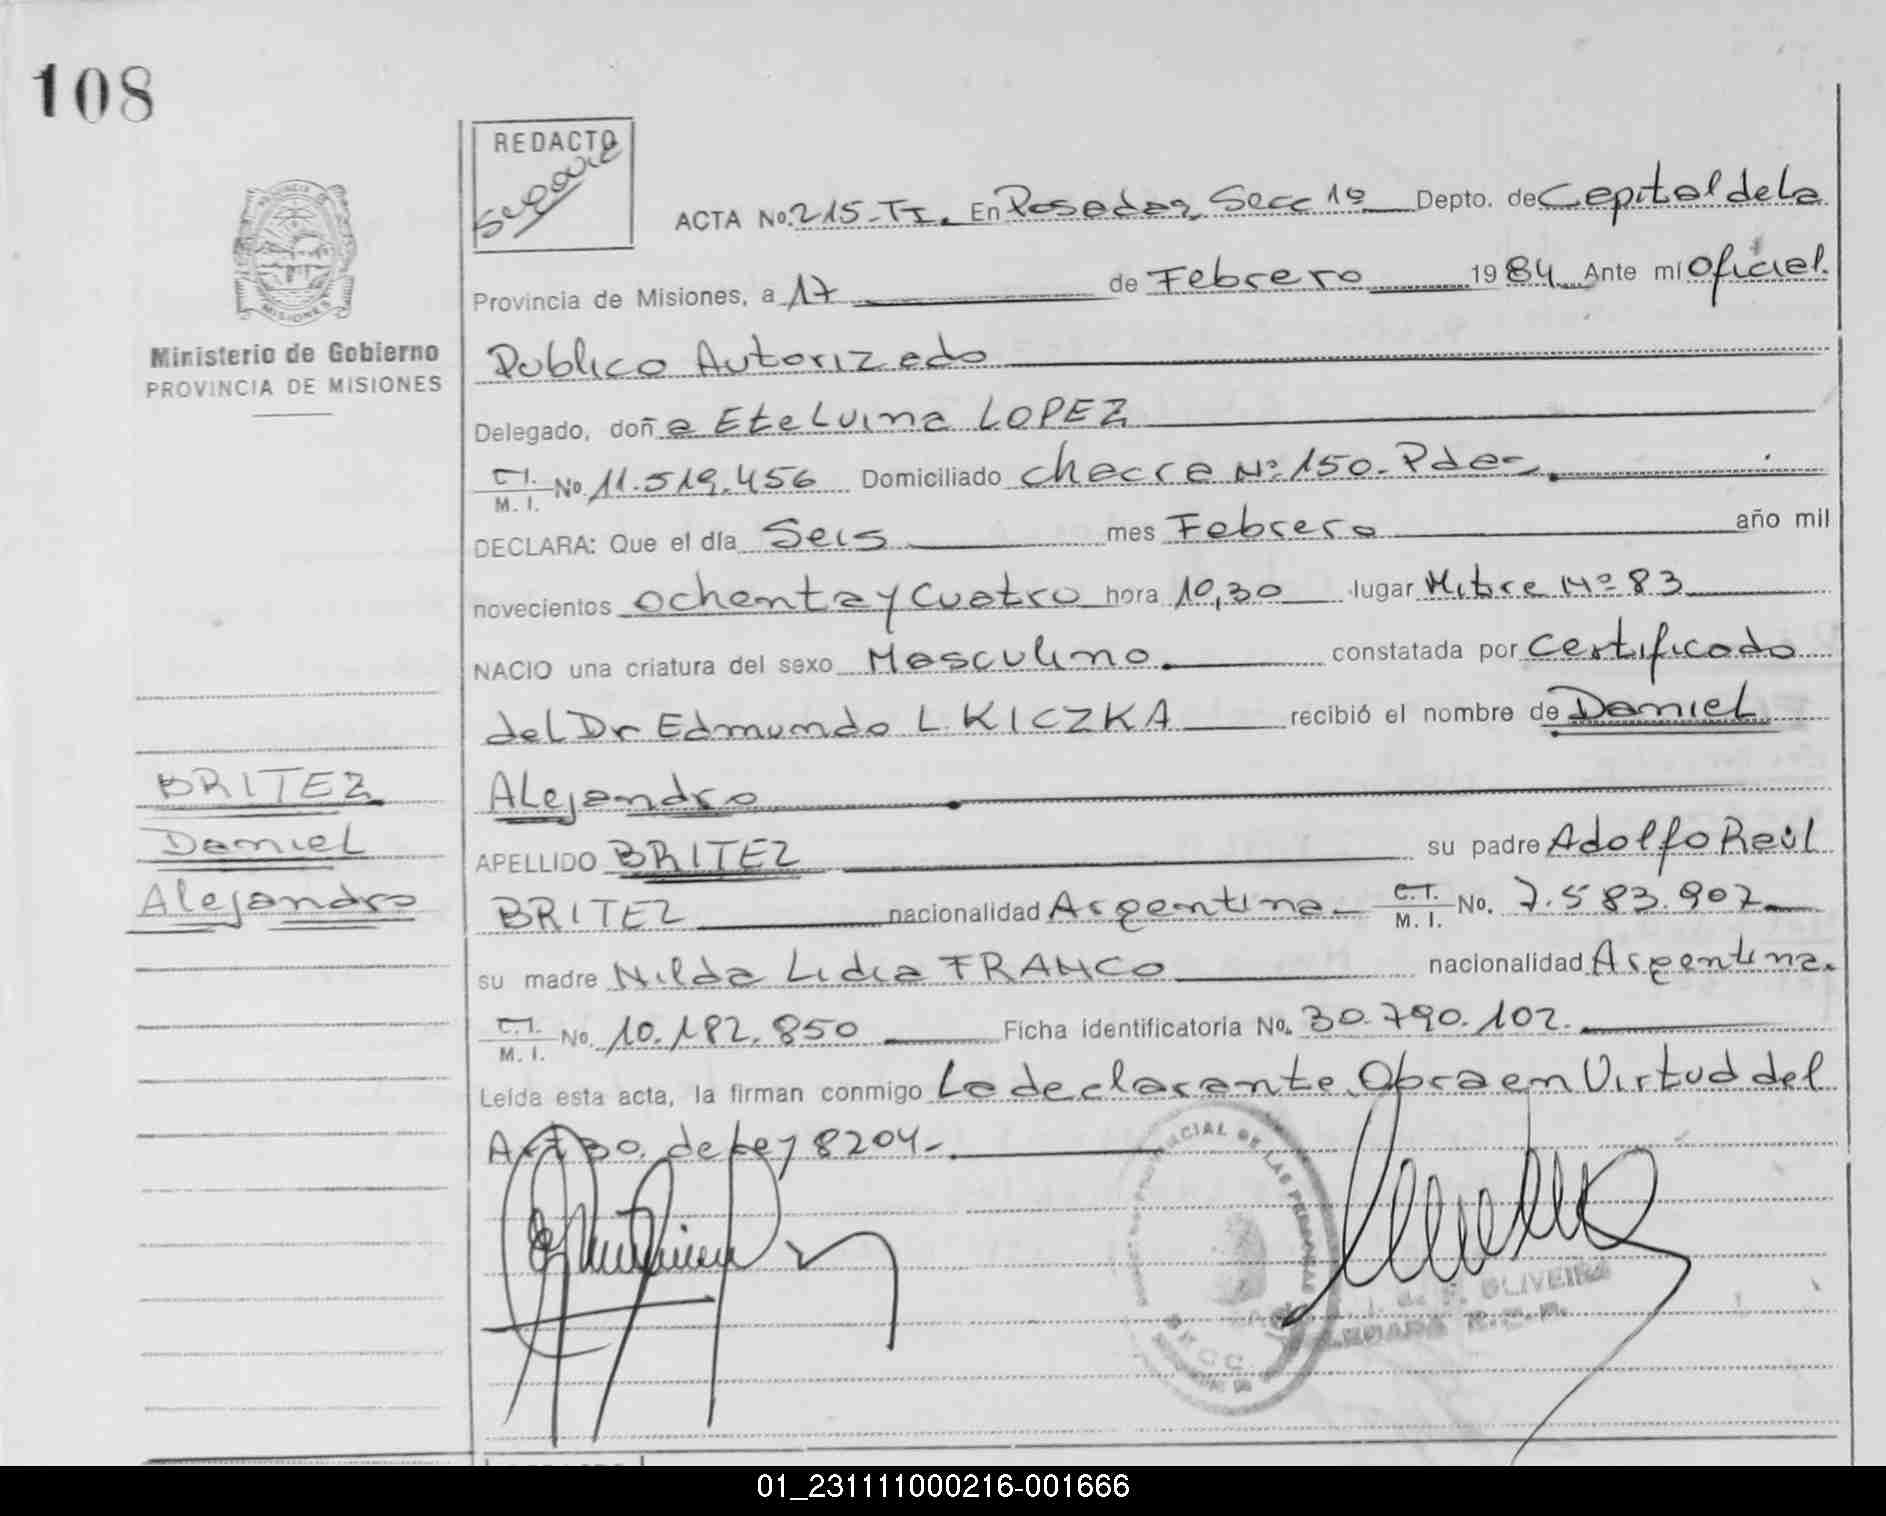 108
REDACTO
ACTA No. 215-TI. En Posadas, Secc 1º Depto. de Capital de la
Provincia de Misiones, a 17 de Febrero 1984 Ante mí Oficial.
Ministerio de Gobierno
PROVINCIA DE MISIONES
Publico Autorizado
Delegado, doña Etelvina LOPEZ
C.I. M. I. No. 11.519.456 Domiciliado Chacra Nº 150. Pdas.
DECLARA: Que el día Seis mes Febrero año mil
novecientos Ochenta y Cuatro hora 10,30 lugar Mitre Nº 83
NACIO una criatura del sexo Masculino constatada por Certificado
del Dr Edmundo L KICZKA recibió el nombre de Daniel
Alejandro
BRITEZ
Daniel
Alejandro
APELLIDO BRITEZ su padre Adolfo Raúl
BRITEZ nacionalidad Argentina C.I. M. I. No. 7.583.907
su madre Nilda Lidia FRANCO nacionalidad Argentina.
C.I. M. I. No. 10.182.850 Ficha identificatoria No. 30.790.102.
Leída esta acta, la firman conmigo La declarante. Obra en Virtud del
Art 30. de Ley 8204-
PROVINCIAL DE LAS PERSONAS
OLIVEIRA
01_231111000216-001666